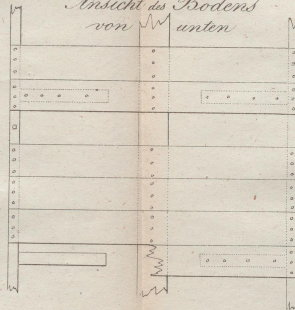 Ansicht des Bodens
von unten